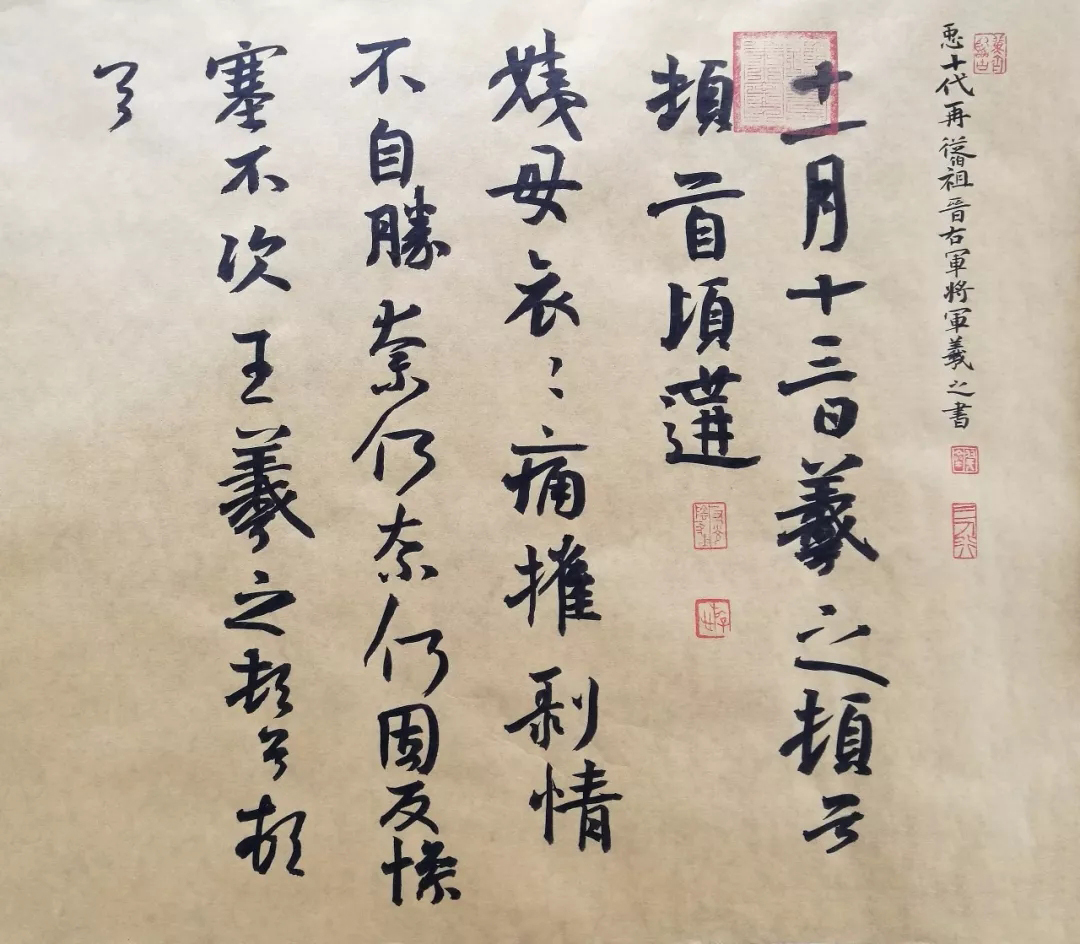 𢘑十代再從伯祖晉右軍將軍羲之書
十一月十三日羲之頓首
頓首頃遘
姨母哀〻痛摧剝情
不自勝奈何奈何因反慘
塞不次王羲之頓首頓
首